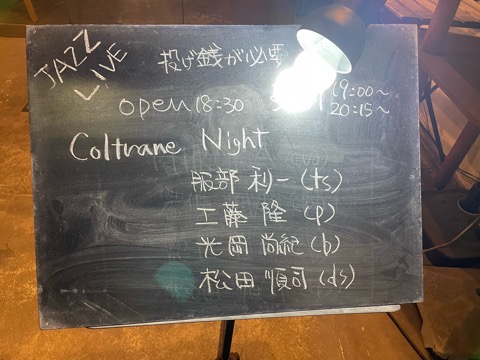 JAZZ
LIVE
投げ銭が必要
open 18:30
19:00~
20:15~
Coltrane Night
服部 利一 (ts)
工藤 隆 (p)
光岡 尚紀 (b)
松田 順司 (ds)